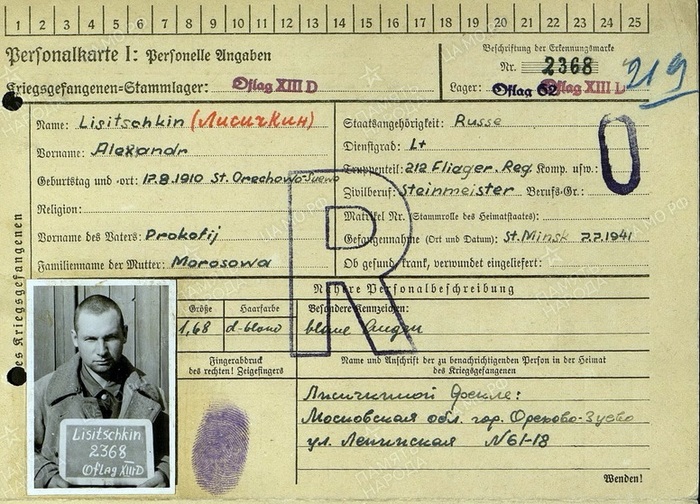 1 2 3 4 5 6 7 8 9 10 11 12 13 14 15 16 17 18 19 20 21 22 23 24 25
Personalkarte I: Personelle Angaben
Kriegsgefangenen-Stammlager: Oflag XIII D
Beschriftung der Erkennungsmarke
Nr. 2368
219
Lager: Oflag 62 Oflag XIII
Name: Lisitschkin (Лисичкин)
Vorname: Alexandr
Geburtstag und -ort: 12.8.1910 St. Orechowo-Suewo
Religion:
Vorname des Vaters: Prokofij
Familienname der Mutter: Morosowa
Staatsangehörigkeit: Russe
Dienstgrad: Lt
Truppenteil: 212 Flieger. Reg. Komp. usw.:
Zivilberuf: Steinmeister Berufs-Gr.:
Matrikel Nr. (Stammrolle des Heimatstaates):
Gefangennahme (Ort und Datum): St. Minsk 2.7.1941
Ob gesund, krank, verwundet eingeliefert:
R
des Kriegsgefangenen
Nähere Personalbeschreibung
Größe
Haarfarbe
Besondere Kennzeichen:
1,68
d-blond
blaue Augen
Fingerabdruck
des rechten! Zeigefingers
Name und Anschrift der zu benachrichtigenden Person in der Heimat
des Kriegsgefangenen
Лисичкиной Фекле:
Московская обл. гор. Орехово-Зуево
ул. Ленинская N61-18
Lisitschkin
2368
Oflag XIII D
Wenden!